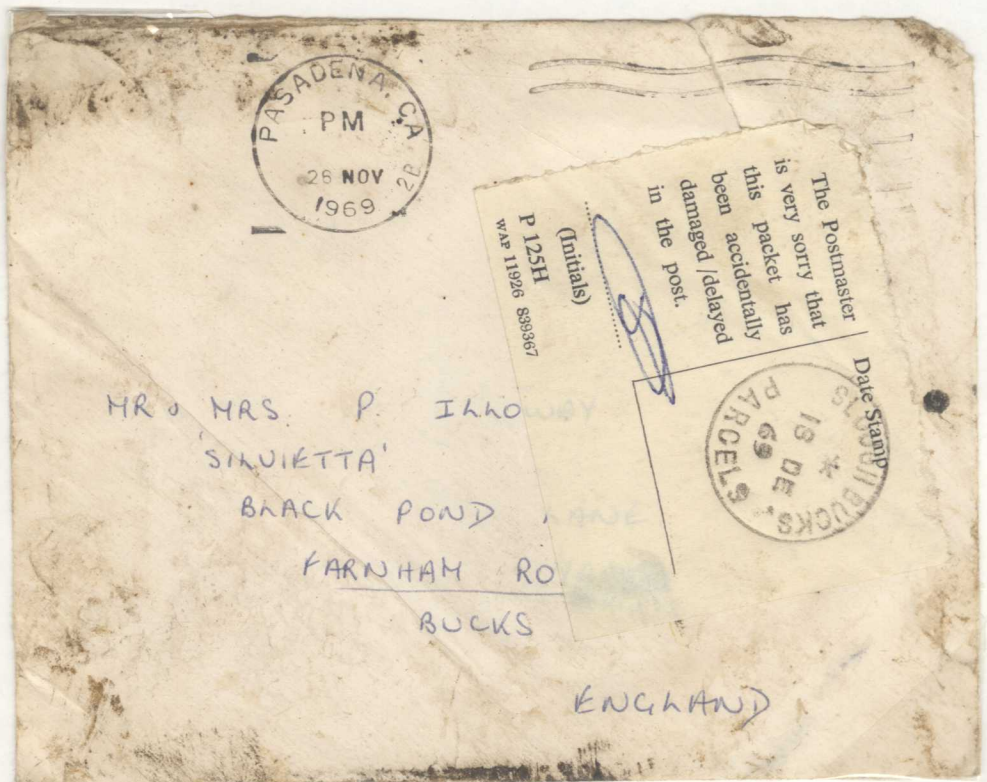 PASADENA, CA
PM
26 NOV
1969
2B
The Postmaster
is very sorry that
this packet has
been accidentally
damaged/delayed
in the post.
(Initials)
P 125H
WAP 11926 839367
Date Stamp
BUCKS.
18 DE
69
PARCELS
MR & MRS. P. ILLO
'SILVIETTA'
BLACK POND LANE
FARNHAM RO
BUCKS
ENGLAND